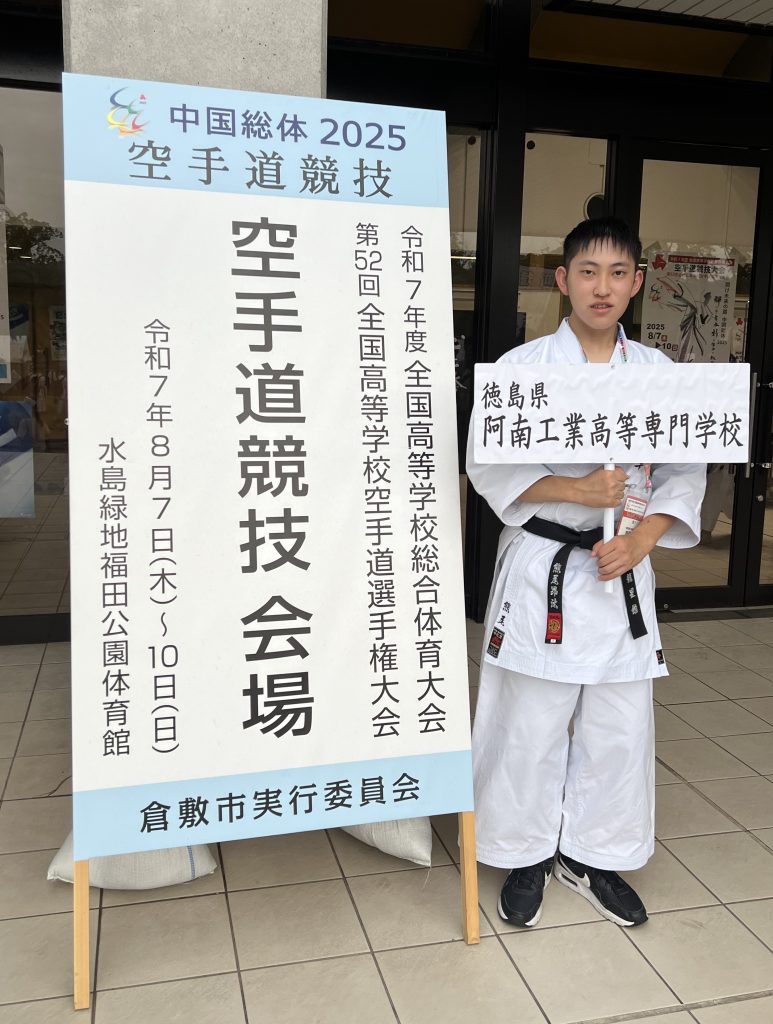 中国総体 2025
空手道競技
令和7年度 全国高等学校総合体育大会
第52回 全国高等学校空手道選手権大会
空手道競技 会場
令和7年8月7日(木)～10日(日)
水島緑地福田公園体育館
倉敷市実行委員会
徳島県
阿南工業高等専門学校
空手道競技大会
2025
8/7
10